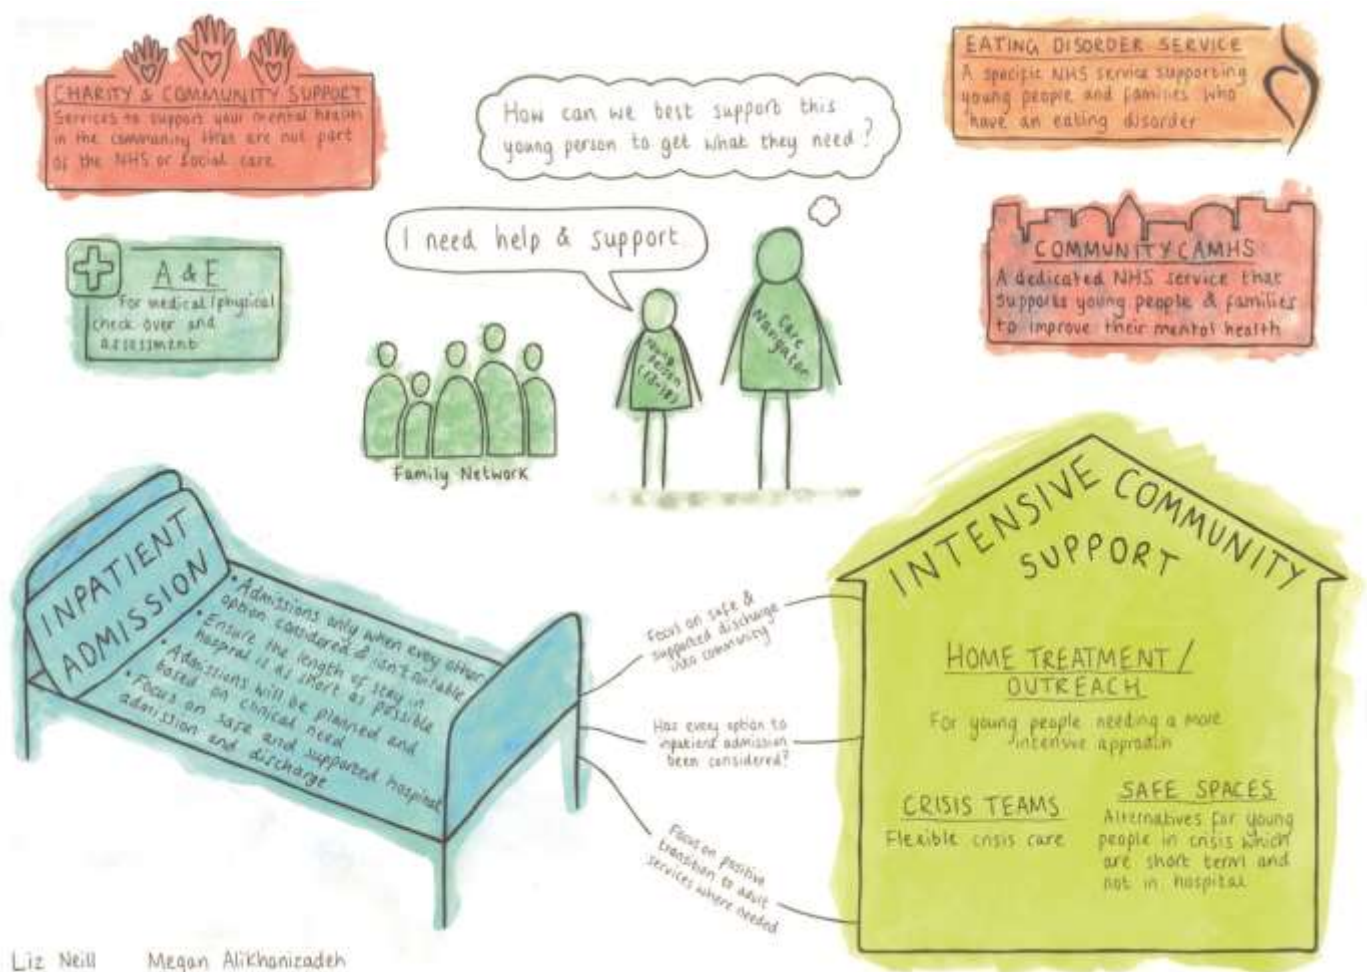 CHARITY & COMMUNITY SUPPORT
Services to support your mental health
in the community that are not part
of the NHS or social care
A & E
For medical/physical
check over and
assessment
How can we best support this
young person to get what they need?
I need help & support
Young
Person
(13-18)
Care
Navigator
Family Network
EATING DISORDER SERVICE
A specific NHS service supporting
young people and families who
have an eating disorder
COMMUNITY CAMHS
A dedicated NHS service that
supports young people & families
to improve their mental health
INPATIENT
ADMISSION
• Admissions only when every other
option considered & isn't suitable
• Ensure the length of stay in
hospital is as short as possible
• Admissions will be planned and
based on clinical need
• Focus on safe and supported hospital
admission and discharge
Focus on safe &
supported discharge
into community
Has every option to
inpatient admission
been considered?
Focus on positive
transition to adult
services where needed
INTENSIVE COMMUNITY
SUPPORT
HOME TREATMENT /
OUTREACH
For young people needing a more
intensive approach
CRISIS TEAMS
Flexible crisis care
SAFE SPACES
Alternatives for young
people in crisis which
are short term and
not in hospital
Liz Neill Megan Alikhanizadeh